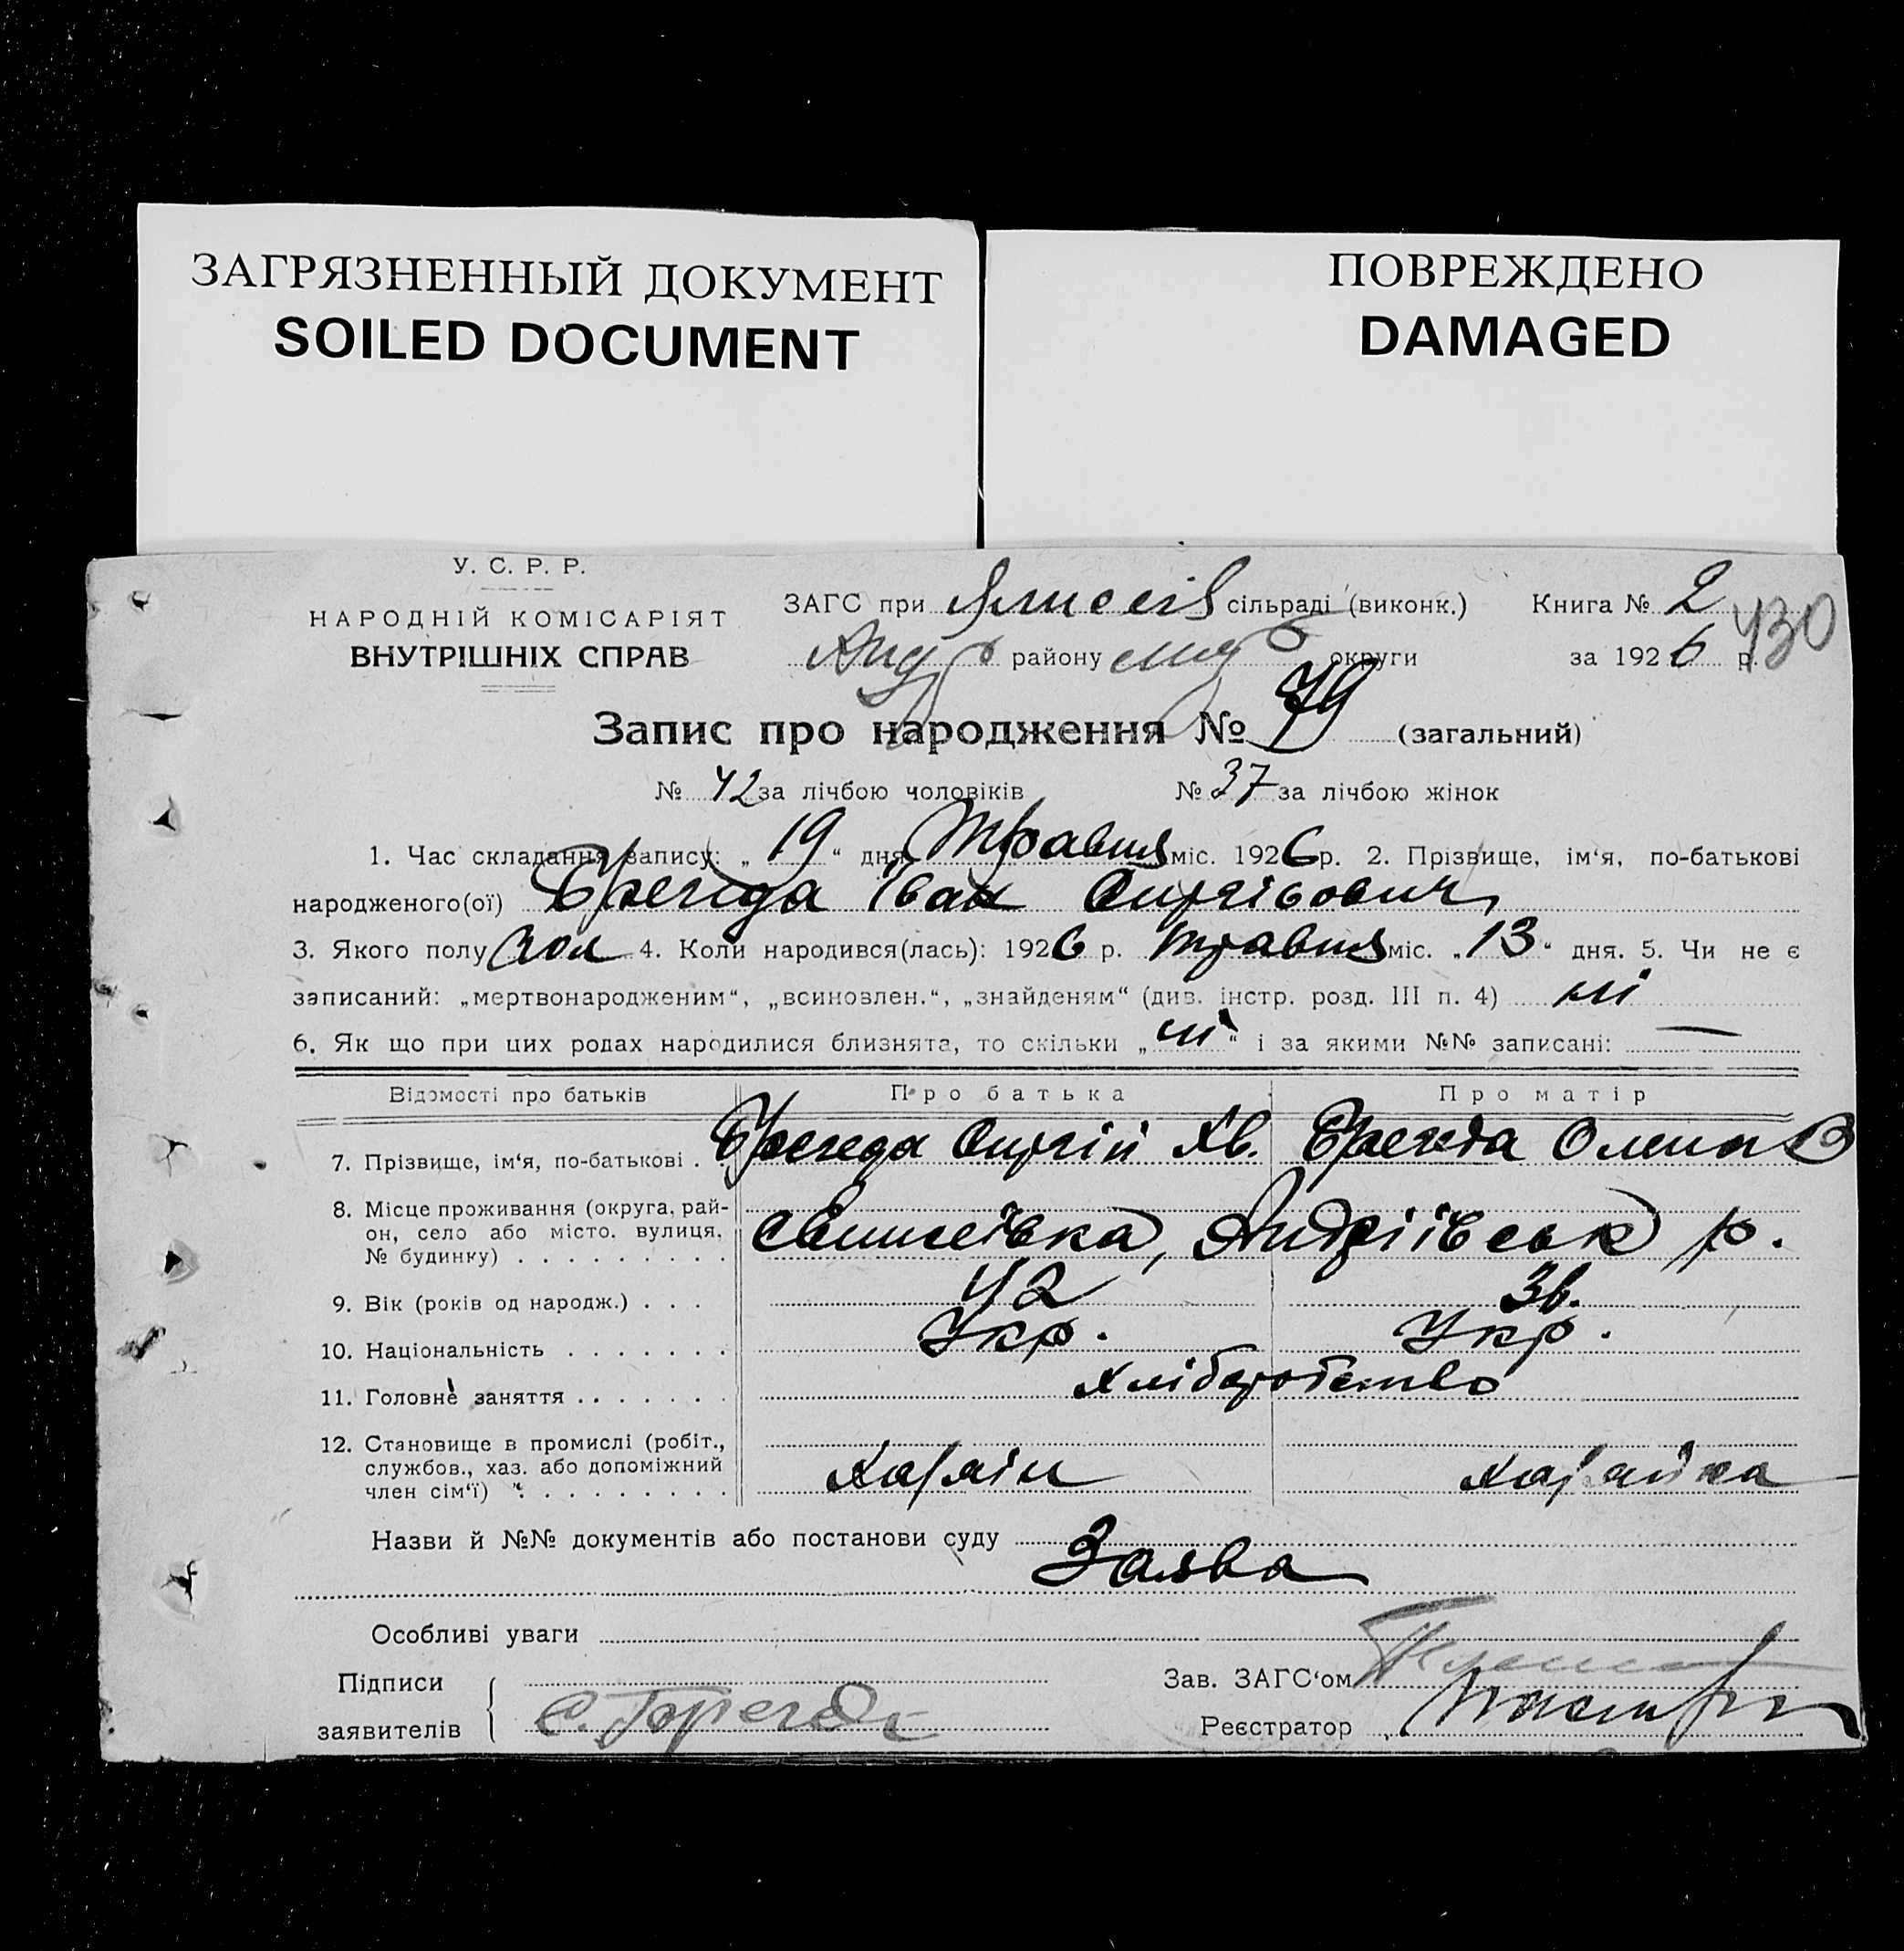 ЗАГРЯЗНЕННЫЙ ДОКУМЕНТ
SOILED DOCUMENT
ПОВРЕЖДЕНО
DAMAGED
У. С. Р. Р.
НАРОДНІЙ КОМІСАРІЯТ
ВНУТРІШНІХ СПРАВ
ЗАГС при сільраді (виконк.) Книга № 2
430
району округи за 1926 р.
Запис про народження № 79 (загальний)
№ 42 за лічбою чоловіків № 37 за лічбою жінок
1. Час складання запису: „ 19 “ дня Травня міс. 1926 р. 2. Прізвище, ім‘я, по-батькові
народженого(ої) Іван
3. Якого полу чол 4. Коли народився(лась): 1926 р. травня міс. „13“ дня. 5. Чи не є
записаний: „мертвонародженим“, „всиновлен.“, „знайденям“ (див. інстр. розд. III п. 4) ні
6. Як що при цих родах народилися близнята, то скільки „ні“ і за якими №№ записані: —
Відомості про батьків Про батька Про матір
7. Прізвище, ім‘я, по-батькові . Хв. Олена В
8. Місце проживання (округа, рай-
он, село або місто. вулиця,
№ будинку) . . . . . . . . . Андріївськ р.
9. Вік (років од народж.) . . . 42 36.
10. Національність . . . . . . . Укр. Укр.
11. Головне заняття . . . . . . . хліборобство
12. Становище в промислі (робіт.,
службов., хаз. або допоміжний
член сім‘ї) . . . . . . . . . Хазяїн хазяйка
Назви й №№ документів або постанови суду
Заява
Особливі уваги
Підписи
заявителів
Зав. ЗАГС‘ом
Реєстратор